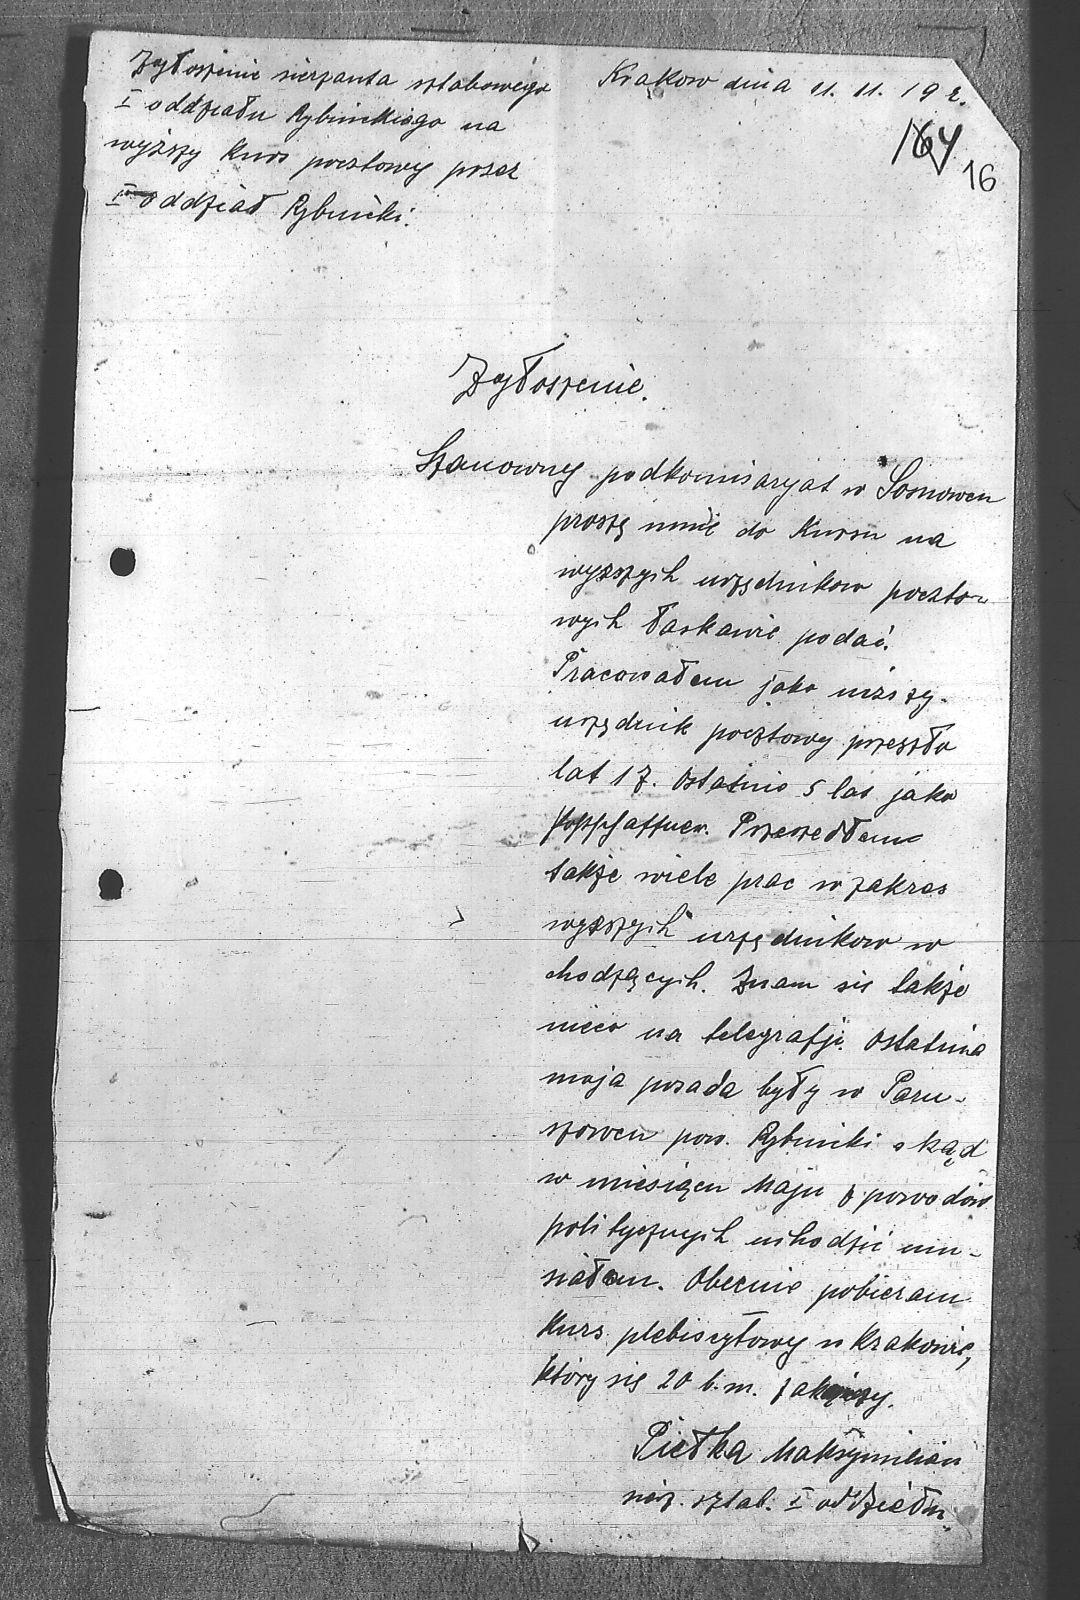 Zgłoszenie sierzanta sztabowego
I oddziału Rybnickiego na
wyższy kurs pocztowy przez
I oddział Rybnicki.
Krakow dnia 11. 11. 19 r.
164
16
Zgłoszenie.
Szanowny podkomisaryat w Sosnowcu
proszę mnie do Kursu na
wyższych urzędnikow poczto-
wych łaskawie podać.
Pracowałem jako niższy
urzędnik pocztowy przeszło
lat 17. Ostatnio 5 lat jako
Przeszedłem
także wiele prac w zakres
wyższych urzędnikow w
chodzących. Znam sie także
nieco na telegrafji. Ostatnia
moja posada były w Paru-
szowcu pow. Rybnicki skąd
w miesiącu Maju z powodów
politycznych uchodzić mu-
siałem. Obecnie pobieram
Kurs plebiscytowy w Krakowie,
który się 20 b.m. zakończy.
Piełka Maksymilian
sierż. sztab. I oddziału.